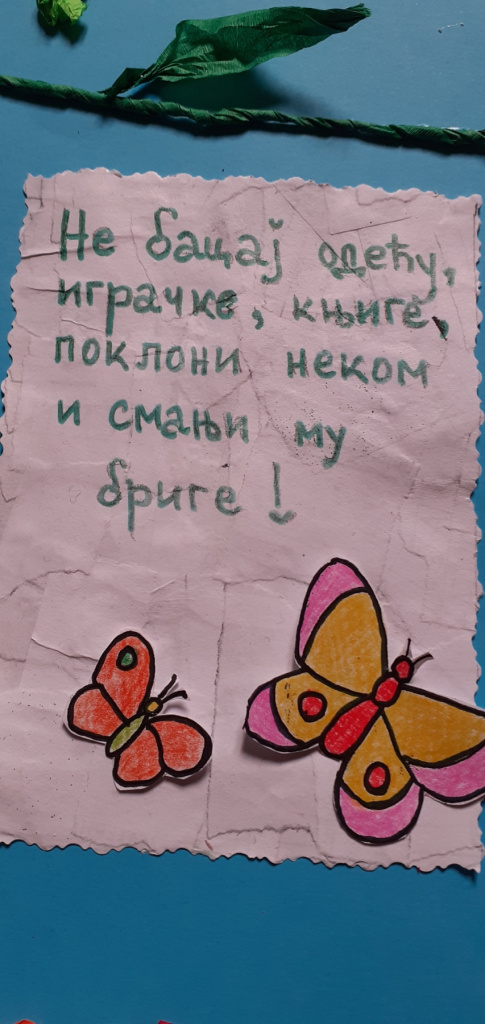 Не бацај одећу,
играчке, књиге,
поклони неком
и смањи му
бриге!